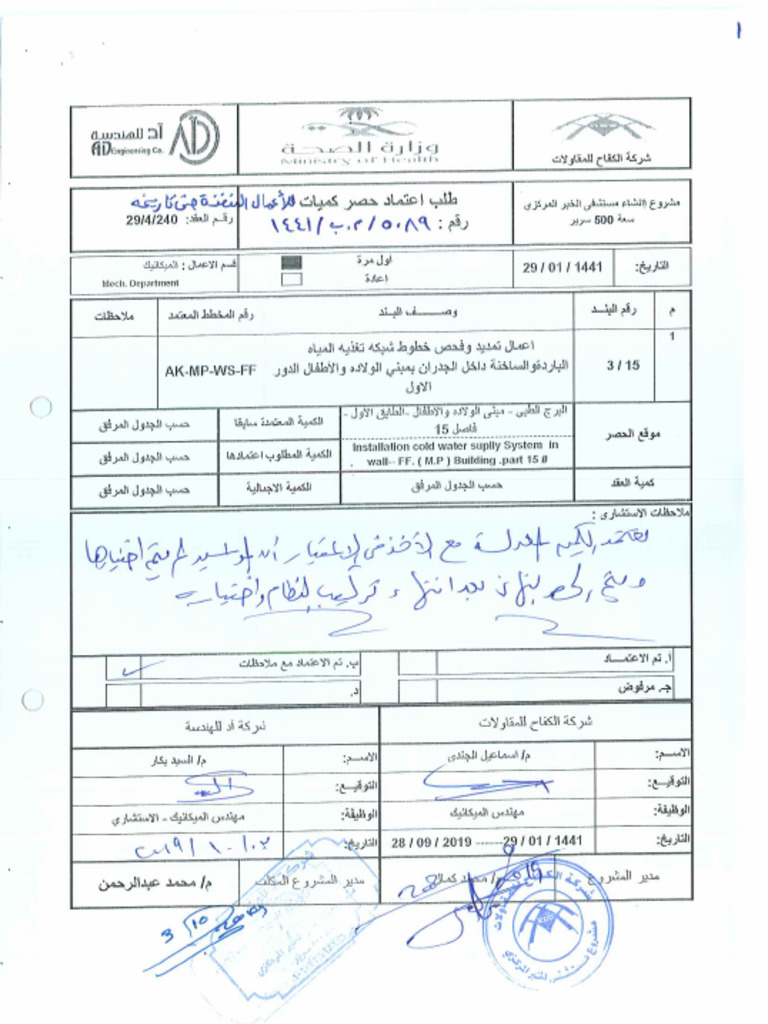 آد للهندسة
AD Engineering Co.
وزارة الصحة
Ministry of Health
شركة الكفاح للمقاولات
مشروع إنشاء مستشفى الخبر المركزي
سعة 500 سرير
طلب اعتماد حصر كميات للأعمال المنفذة حتى تاريخه
رقم : ٥٠٨٩/م.ب/١٤٤١
رقم العقد: 29/4/240
التاريخ:
29 / 01 / 1441
اول مرة
اعادة
قسم الاعمال : الميكانيك
Mech. Department
م
رقم البند
وصف البند
رقم المخطط المعتمد
ملاحظات
1
3 / 15
اعمال تمديد وفحص خطوط شبكه تغذيه المياه
الباردةوالساخنة داخل الجدران بمبني الولاده والأطفال الدور
الاول
AK-MP-WS-FF
موقع الحصر
البرج الطبى - مبنى الولاده والاطفال -الطابق الاول -
فاصل 15
Installation cold water suplly System in
wall-- FF. ( M.P ) Building .part 15 #
الكمية المعتمدة سابقا
حسب الجدول المرفق
الكمية المطلوب اعتمادها
حسب الجدول المرفق
كمية العقد
حسب الجدول المرفق
الكمية الاجمالية
حسب الجدول المرفق
ملاحظات الاستشارى :
تعتمد الكميه مع الأخذ في الإعتبار أن لم يتم اختبارها
بعد انتهاء تركيب النظام واختباره
أ. تم الاعتماد
ب. تم الاعتماد مع ملاحظات
جـ. مرفوض
د.
شركة الكفاح للمقاولات
شركة آد للهندسة
الاسم:
م/ اسماعيل الجندى
الاسم:
م/ السيد بكار
التوقيع:
التوقيع:
الوظيفة:
مهندس الميكانيك
الوظيفة:
مهندس الميكانيك - الاستشاري
التاريخ:
28 / 09 / 2019 ------- 29 / 01 / 1441
التاريخ:
مدير المشروع
م/ محمد كمال
مدير المشروع المكلف
م/ محمد عبدالرحمن
3/10
شركة الكفاح للمقاولات